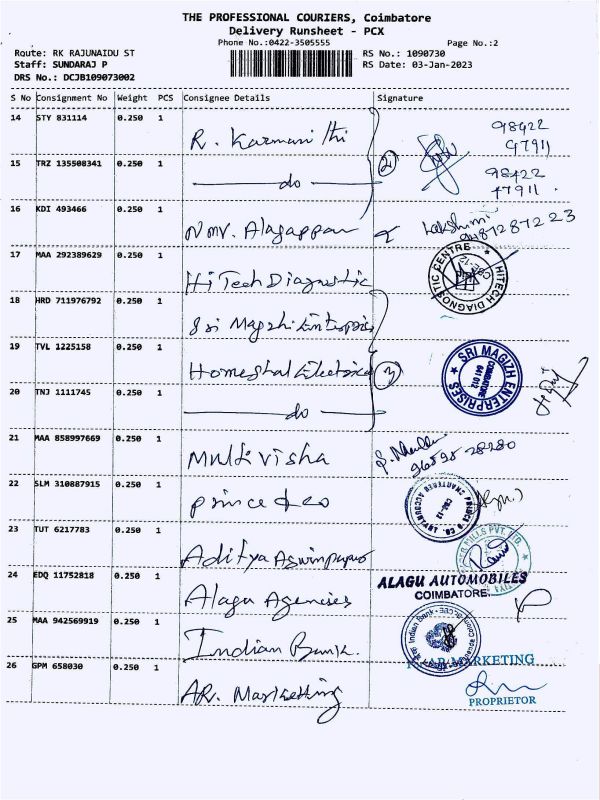 THE PROFESSIONAL COURIERS, Coimbatore
Delivery Runsheet - PCX
Phone No.:0422-3505555
Page No.:2
Route: RK RAJUNAIDU ST
RS No.: 1090730
Staff: SUNDARAJ P
RS Date: 03-Jan-2023
DRS No.: DCJB109073002
S No Consignment No Weight PCS Consignee Details Signature
14 STY 831114 0.250 1 R. Karmani
98422
47911
15 TRZ 135508341 0.250 1 do
2
98422
47911
16 KDI 493466 0.250 1 NMV. Alagappan
Lakshmi
9487287223
17 MAA 292389629 0.250 1 HiTech Diagnostic
HITECH DIAGNOSTIC CENTRE
18 HRD 711976792 0.250 1 Sri Magzhi Enterprises
19 TVL 1225158 0.250 1 Electrical
3
SRI MAGIZH ENTERPRISES
COIMBATORE
641 012
20 TNJ 1111745 0.250 1 do
21 MAA 858997669 0.250 1 Multivisha
96595 28280
22 SLM 310887915 0.250 1 prince & co
PRINCE & CO. CHARTERED ACCOUNTANTS
23 TUT 6217783 0.250 1 Aditya
MILLS PVT. LTD.
24 EDQ 11752818 0.250 1 Alagu Agencies
ALAGU AUTOMOBILES
COIMBATORE.
25 MAA 942569919 0.250 1 Indian Bank.
26 GPM 658030 0.250 1 AR. Marketing
AR MARKETING
PROPRIETOR